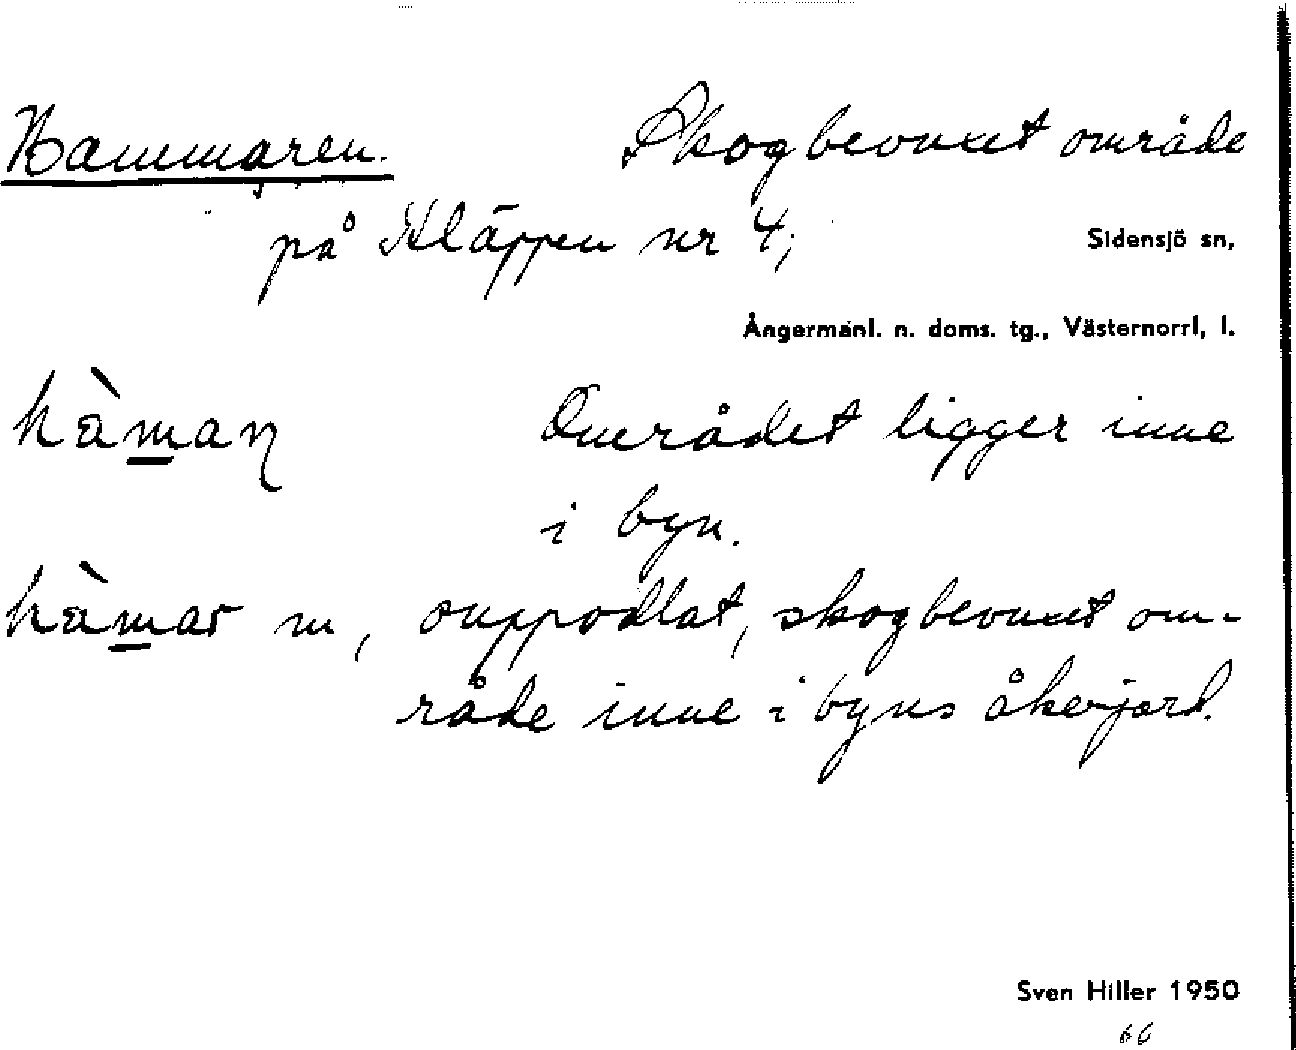 Hammaren. Skogbevuxet område
på Kläppen nr 4;
Sidensjö sn,
Ångermanl. n. doms. tg., Västernorrl, l.
hàmaɳ Området ligger inne
i byn.
hàmar m, ouppodlat, skogbevuxet om-
råde inne i byns åkerjord.
Sven Hiller 1950
66